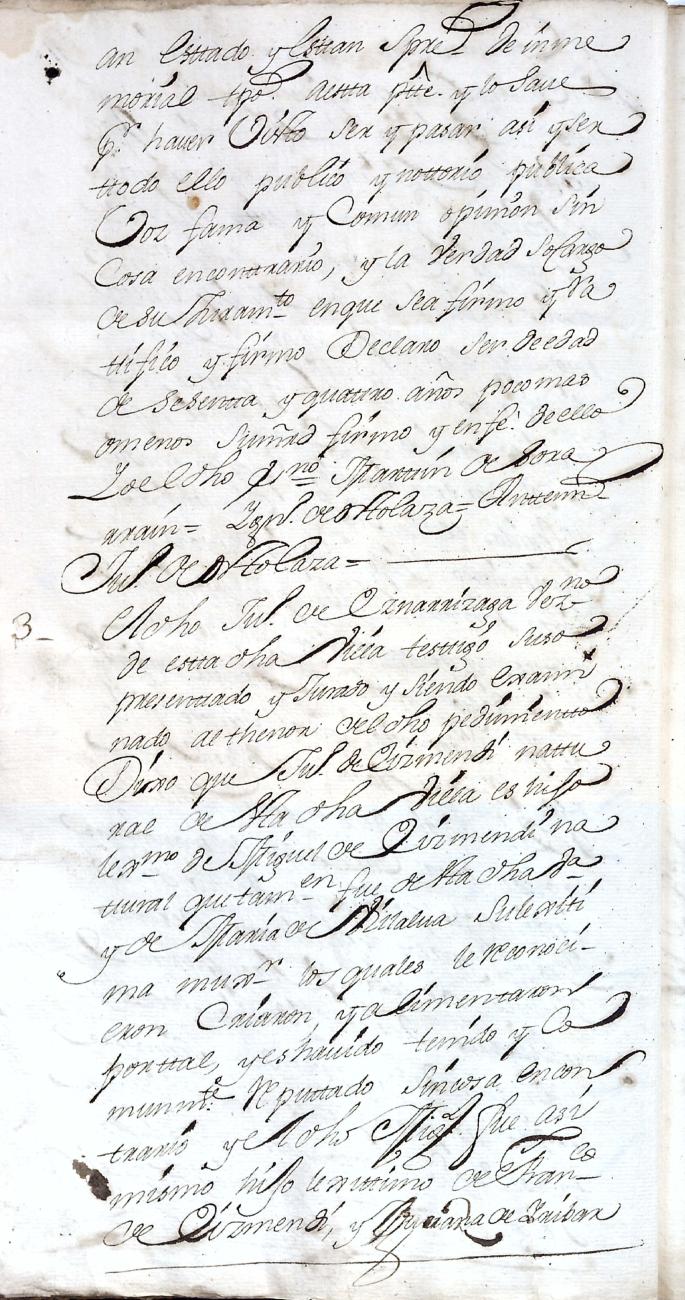 an esttado y esttan spre. de inme
morial tpo. astta ptte. y lo save
pr. haver visto ser y pasar asi y ser
ttodo ello publico y nottorio publica
voz fama y comun opinion sin
cosa enconttrario, y la verdad so cargo
de su Juramto. en que se afirmo y Ra
ttifico y firmo Declaro ser de edad
de sesentta y quattro años poco mas
o menos su mrd. firmo y en fe de ello
Yo el dho Essno. Marttin de
rrain= Ygn. de Olaza= Antte mi
Ju. de Olaza=
3_ El dho Ju. de Eznarrizaga vezno.
de estta dha villa testtigo suso
presenttado y Jurado y siendo exami
nado al thenor del dho pedimientto
Dixo que Ju. de Oizmendi nattu
ral de Sta dha villa es hijo
lexmo. de Miguel de Oizmendi na
ttural que tamen. fue de Sta dha va.
y de Maria de Villalva su lexiti
ma muxr. los quales le reconoci-
eron criaron, y alimentaron
por ttal, y es havido tenido y co
munmte. Reputtado sin cosa en con
trario y el dho Migl. fue asi
mismo hijo lexittimo de Franco.
de Oizmendi, y Mariana de Yribar